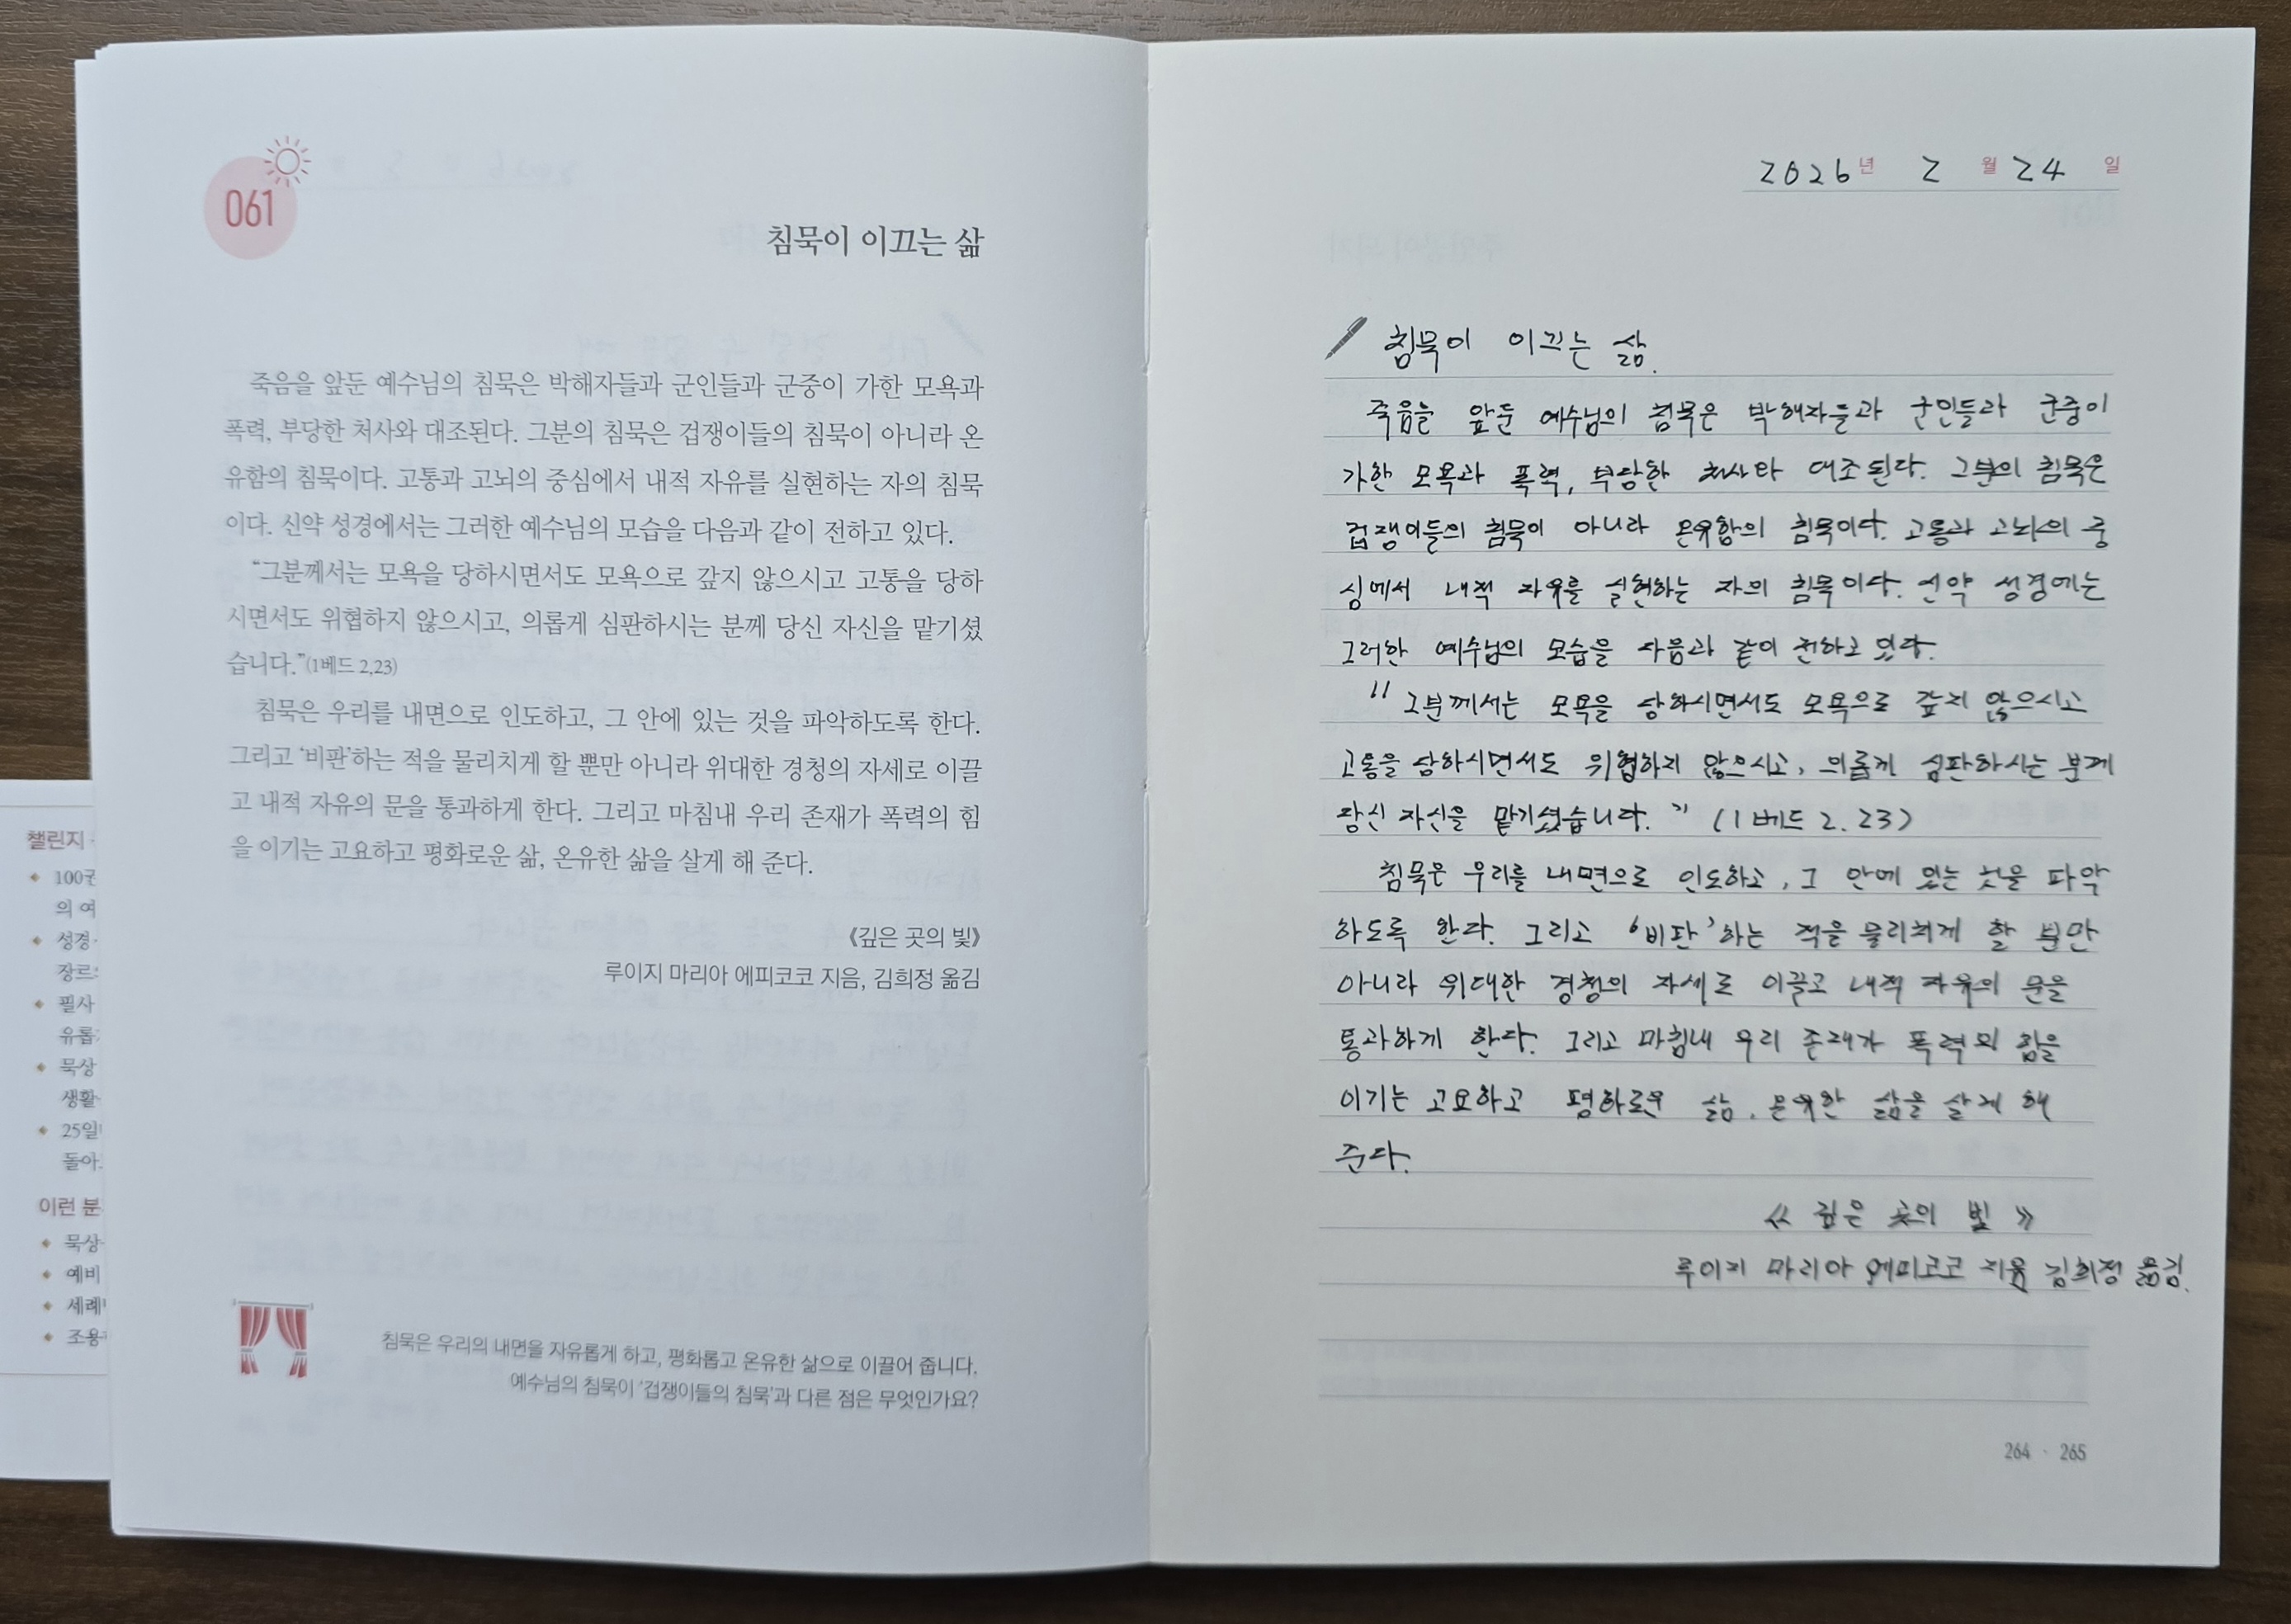 061
침묵이 이끄는 삶
죽음을 앞둔 예수님의 침묵은 박해자들과 군인들과 군중이 가한 모욕과
폭력, 부당한 처사와 대조된다. 그분의 침묵은 겁쟁이들의 침묵이 아니라 온
유함의 침묵이다. 고통과 고뇌의 중심에서 내적 자유를 실현하는 자의 침묵
이다. 신약 성경에서는 그러한 예수님의 모습을 다음과 같이 전하고 있다.
“그분께서는 모욕을 당하시면서도 모욕으로 갚지 않으시고 고통을 당하
시면서도 위협하지 않으시고, 의롭게 심판하시는 분께 당신 자신을 맡기셨
습니다.”(1베드 2,23)
침묵은 우리를 내면으로 인도하고, 그 안에 있는 것을 파악하도록 한다.
그리고 ‘비판’하는 적을 물리치게 할 뿐만 아니라 위대한 경청의 자세로 이끌
고 내적 자유의 문을 통과하게 한다. 그리고 마침내 우리 존재가 폭력의 힘
을 이기는 고요하고 평화로운 삶, 온유한 삶을 살게 해 준다.
《깊은 곳의 빛》
루이지 마리아 에피코코 지음, 김희정 옮김
침묵은 우리의 내면을 자유롭게 하고, 평화롭고 온유한 삶으로 이끌어 줍니다.
예수님의 침묵이 ‘겁쟁이들의 침묵’과 다른 점은 무엇인가요?
챌린지
100권
의 여
성경
장르
필사
유롭
묵상
생활
25일
돌아
이런 분
묵상
예비
세례
조용
2026년 2월 24일
침묵이 이끄는 삶.
죽음을 앞둔 예수님의 침묵은 박해자들과 군인들과 군중이
가한 모욕과 폭력, 부당한 처사와 대조된다. 그분의 침묵은
겁쟁이들의 침묵이 아니라 온유함의 침묵이다. 고통과 고뇌의 중
심에서 내적 자유를 실현하는 자의 침묵이다. 신약 성경에는
그러한 예수님의 모습을 다음과 같이 전하고 있다.
"그분께서는 모욕을 당하시면서도 모욕으로 갚지 않으시고
고통을 당하시면서도 위협하지 않으시고, 의롭게 심판하시는 분께
당신 자신을 맡기셨습니다." (1베드 2.23)
침묵은 우리를 내면으로 인도하고, 그 안에 있는 것을 파악
하도록 한다. 그리고 '비판'하는 적을 물리치게 할 뿐만
아니라 위대한 경청의 자세로 이끌고 내적 자유의 문을
통과하게 한다. 그리고 마침내 우리 존재가 폭력의 힘을
이기는 고요하고 평화로운 삶, 온유한 삶을 살게 해
준다.
《깊은 곳의 빛》
루이지 마리아 에피코코 지음 김희정 옮김.
264 · 265